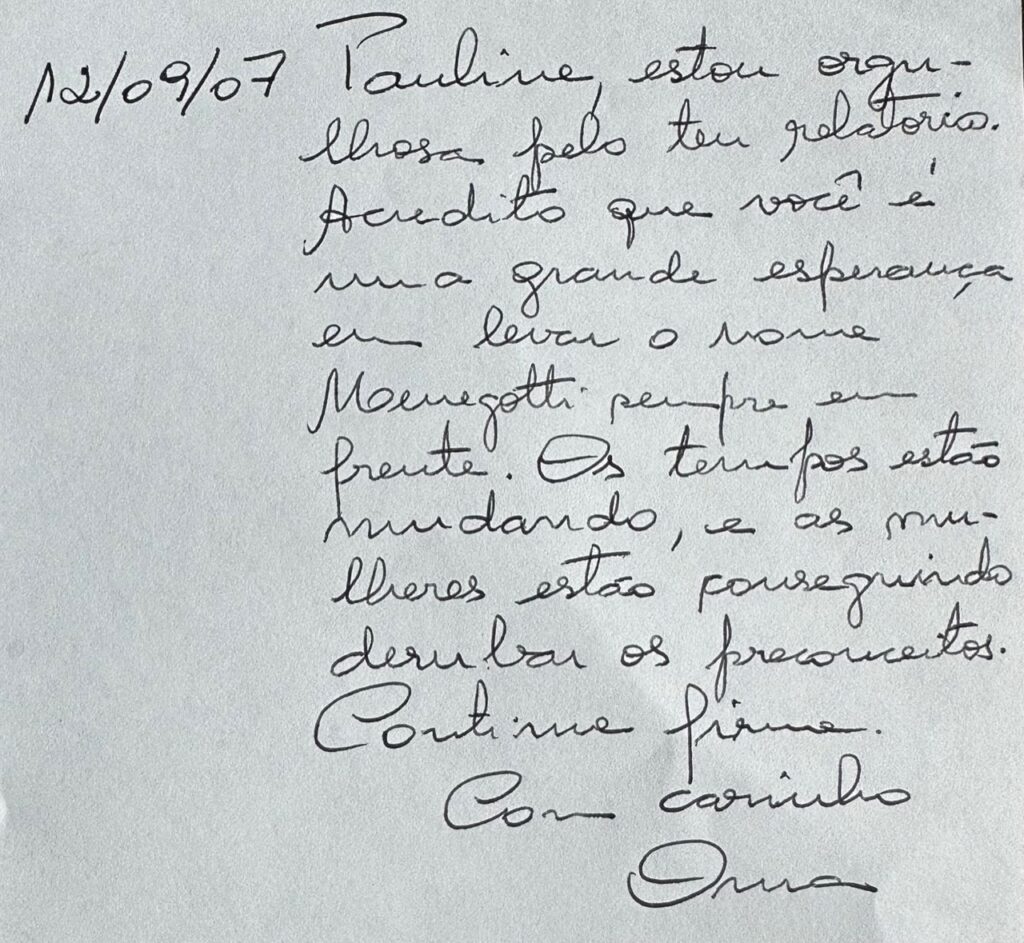 12/09/07 Pauline, estou orgu-
lhosa pelo teu relatorio.
Acredito que você é
uma grande esperança
em levar o nome
Menegotti sempre em
frente. Os tempos estão
mudando, e as mu-
lheres estão conseguindo
derrubar os preconceitos.
Continue firme.
Com carinho
Oma